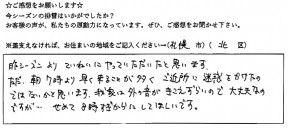 ☆ご感想をお願いします☆
今シーズンの排雪はいかがでしたか?
お客様の声が、私たちの原動力になっています。ぜひ、ご感想をお聞かせ下さい。
※差支えなければ、お住まいの地域をご記入ください→(札幌 市)(北 区)
昨シーズンよりていねいにやっていただいたと思います。
ただ、朝7時より早く来ることが多く ご近所に迷惑をかけたの
ではないかと思います。我家は外の音がきこえずらいので大丈夫なの
ですが… せめて8時すぎからにしてほしいです。